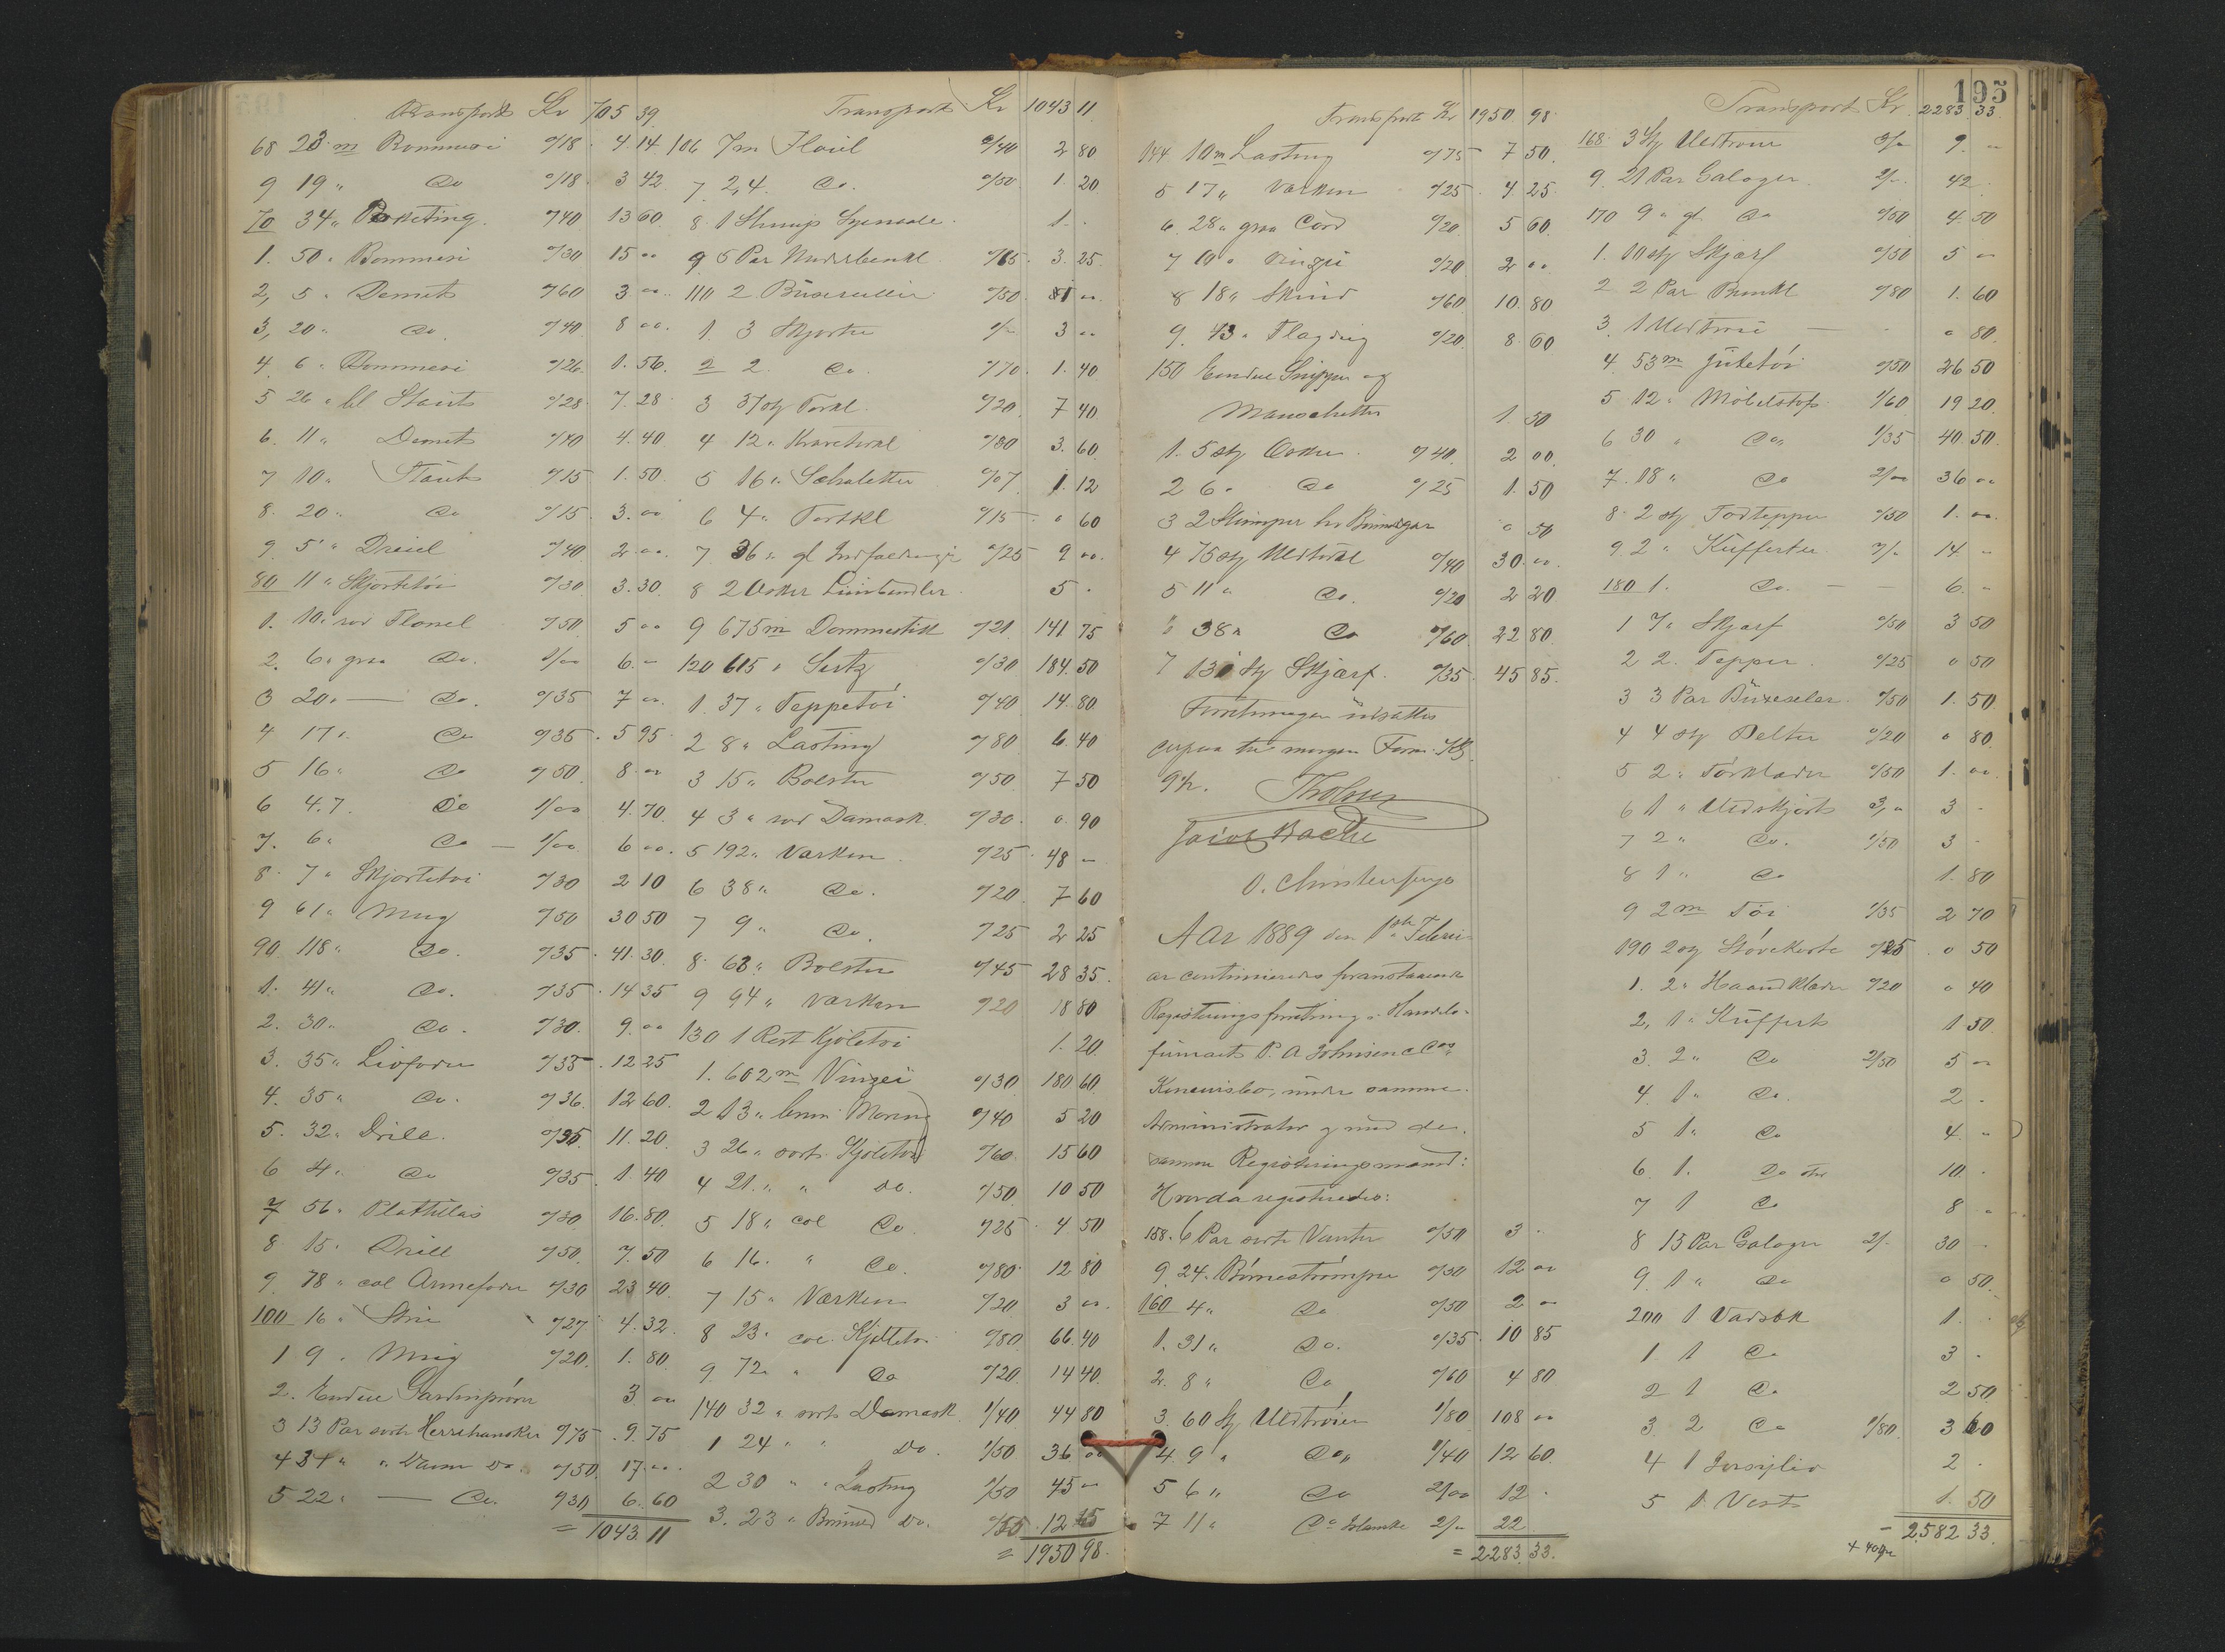 Transport Kr 705 39
68 23 m Bommesi 0/18 4.14
9 19 " Do 0/18 3 42
70 34 " Poketing 0/40 13 60
1. 50 " Bommesi 0/30 15 00
2, 5 " Demets 0/60 3 00
3, 20 " Do 0/40 8 00
4 6 " Bommesi 0/26 1.56
5 26 " bl Stouts 0/28 7.28
6. 11 " Demets 0/40 4.40
7 10 " Stouts 0/15 1.50
8. 20 " Do 0/15 3.00
9. 5 " Dreiel 0/40 2.00
80 11 " Skjortetöi 0/30 3.30
1. 10 " rød Flonel 0/50 5 00
2. 6 " graa Do. 1/00 6. "
3 20 " — Do. 0/35 7 00
4 17 " Do 0/35 5 95
5 16 " Do 0/50 8 00
6 4.7 Do 1/00 4.70
7. 6 " Do — 1/00 6 00
8. 7 " Skjortetöi 0/30 2 10
9 61 " Ming 0/50 30 50
90 118 " Do. 0/35 41.30
1. 41 " Do. 0/35 14 35
2. 30 " Do. 0/30 9.00
3. 35 " Livfoder 0/35 12 25
4. 35 " Do. 0/36 12 60
5. 32 " Drill 0/35 11.20
6 4 " Do 0/35 1.40
7 56 " Plattilas 0/30 16.80
8 15 " Drill 0/50 7.50
9 78 " col Ærmefoder 0/30 23 40
100 16 " Strie 0/27 4.32
1 9 " Ming 0/20 1.80
2. Endel Gardinprøver 3 00
3 13 Par sorte Herrehansker 0/75 9.75
4 34 " " Dame Do. 0/50 17.00
5 22 " — Do. 0/30 6.60
= 1043.11
Transport Kr 1043 11
106 7 m Floiel 0/40 2 80
7 2,4 Do. 0/50 1.20
8 1 Stump Syensale 1.
9 5 Par Underbenkl 0/65 3.25
110 2 Buxeseller 0/50 1 00
1 3 Skjorter 1/" 3 00
2 2 Do. 0/70 1.40
3 37 stg Forkl. 0/20 7 40
4 12 " 0/30 3.60
5 16 " Schaletter 0/07 1.12
6 4 " Fortkl 0/15 0 60
7 36 " gl 0/25 9 00
8 2 Esker 5 "
9 675 m Dommestik 0/21 141 75
120 615 " Sirtz 0/30 184.50
1 37 " Teppetöi 0/40 14.80
2 8 " Lasting 0/80 6.40
3 15 " Bolster 0/50 7 50
4 3 " rød Damask 0/30 0.90
5 192 " Værken 0/25 48 "
6 38 " Do. 0/20 7 60
7 9 " Do. 0/25 2 25
8 63 " Bolster 0/45 28 35
9 94 " Værken 0/20 18 80
130 1 Rest Kjoletöi 1.20
1. 602 m Vinzei 0/30 180 60
2 13 " brun Moring 0/40 5 20
3 26 " sorte Kjoletöi 0/60 15 60
4 21 " " Do. 0/50 10 50
5 18 " col Do. 0/25 4 50
6 16 " Do. 0/80 12 80
7 15 " Værken 0/20 3 00
8 23 " col. Kjoletöi 0/80 66.40
9 72 " Do 0/20 14 40
140 32 " sorte Damask 1/40 44 80
1 24 " " Do. 1/50 36 00
2 30 " " Lasting 1/50 45 "
3. 23 " Do. 0/55 12 65
= 1950 98
Transport Kr 1950.98
144 10 m Lasting 0/75 7 50
5 17 " Værken 0/25 4 25
6. 28 " graa Cord 0/20 5 60
7 10 " Vinzei 0/20 2 00
8 18 " Skind 0/60 10.80
9. 43 " Flagdug 0/20 8 60
150 Endel Snipper og
Manschetter 1.30
1. 5 stg Esker 0/40 2 00
2 6 " Do 0/25 1.50
3 2 Stumper 0 50
4 75 stg Uldtörkl 0/40 30.00
5 11 " Do. 0/20 2 20
6 38 " Do 0/60 22 80
7 131 stg Skjærf 0/35 45 85
Forretningen udsattes
derpaa til morgen Form. Kl.
9½.
Jacob Bache
O. Christensen
Aar 1889 den 1ste Febru-
ar continueredes foranstaaende
Registreringsforretning i Handels-
firmaets P. A. Johnsen & Co's
Konkursbo, under samme
Administrator og med de
samme Registreringsmænd:
Hvorda registreredes:
158. 6 Par sorte Vanter 0/50 3 "
9. 24 " Börneströmper 0/50 12 00
160 4 " Do 0/50 2 "
1. 31 " Do. 0/35 10 85
2. 8 " Do 0/60 4 80
3. 60 stg Uldtröier 1/80 108 00
4. 9 " Do " 1/40 12 60
5 6 " Do 2/00 12 "
7 11 " Do Islandske 2/" 22
= 2283.33.
195
Transport Kr 2283 33
168 3 stg Uldtröier 3/" 9. "
9. 21 Par Galoger 2/" 42
170 9 " gl Do 0/50 4 50
1. 10 stg Skjærf 0/50 5 "
2 2 Par Benkl 0/80 1.60
3. 1 Uldtröie — 0 80
4. 53 m Jutetöi 0/50 26 50
5 12 " Möbelstof 1/60 19 20
6 30 " Do " 1/35 40.50
7. 18 " Do 2/00 36 00
8. 2 stg Fodtepper 0/50 1.00
9 2 " Kufferter 7/" 14 "
180 1. Do. — 6. "
1 7 " Skjærf 0/50 3 50
2 2. Tepper 0/25 0 50
3 3 Par Buxeseler 0/50 1.50
4 4 stg Belter 0/20 0 80
5 2 " Törklæder 0/50 1.00
6 1 " Uldskjorte 3/" 3 "
7 2 " Do. 1/50 3 "
8 1 " Do 1.80
9 2 m Töi 1/35 2 70
190 2 stg Stövekoste 0/25 0 50
1. 2 " Haandklæder 0/20 0 40
2, 1 " Kuffert 1 50
3. 2 " Do 2/50 5 "
4. 1 " Do. 2 "
5 1 " Do 4 "
6. 1. Do 10.
7 1 Do 8 "
8 13 Par Galoger 2/" 30 "
9. 1 " Do 0 50
200 1 Vadsæk 1.
1. 1 Do 3 "
2 1 Do 2 50
3. 2 Do 1/80 3 60
4 1 Jerseyliv 2 "
5 1 Vest 1.50
= 2582 33.